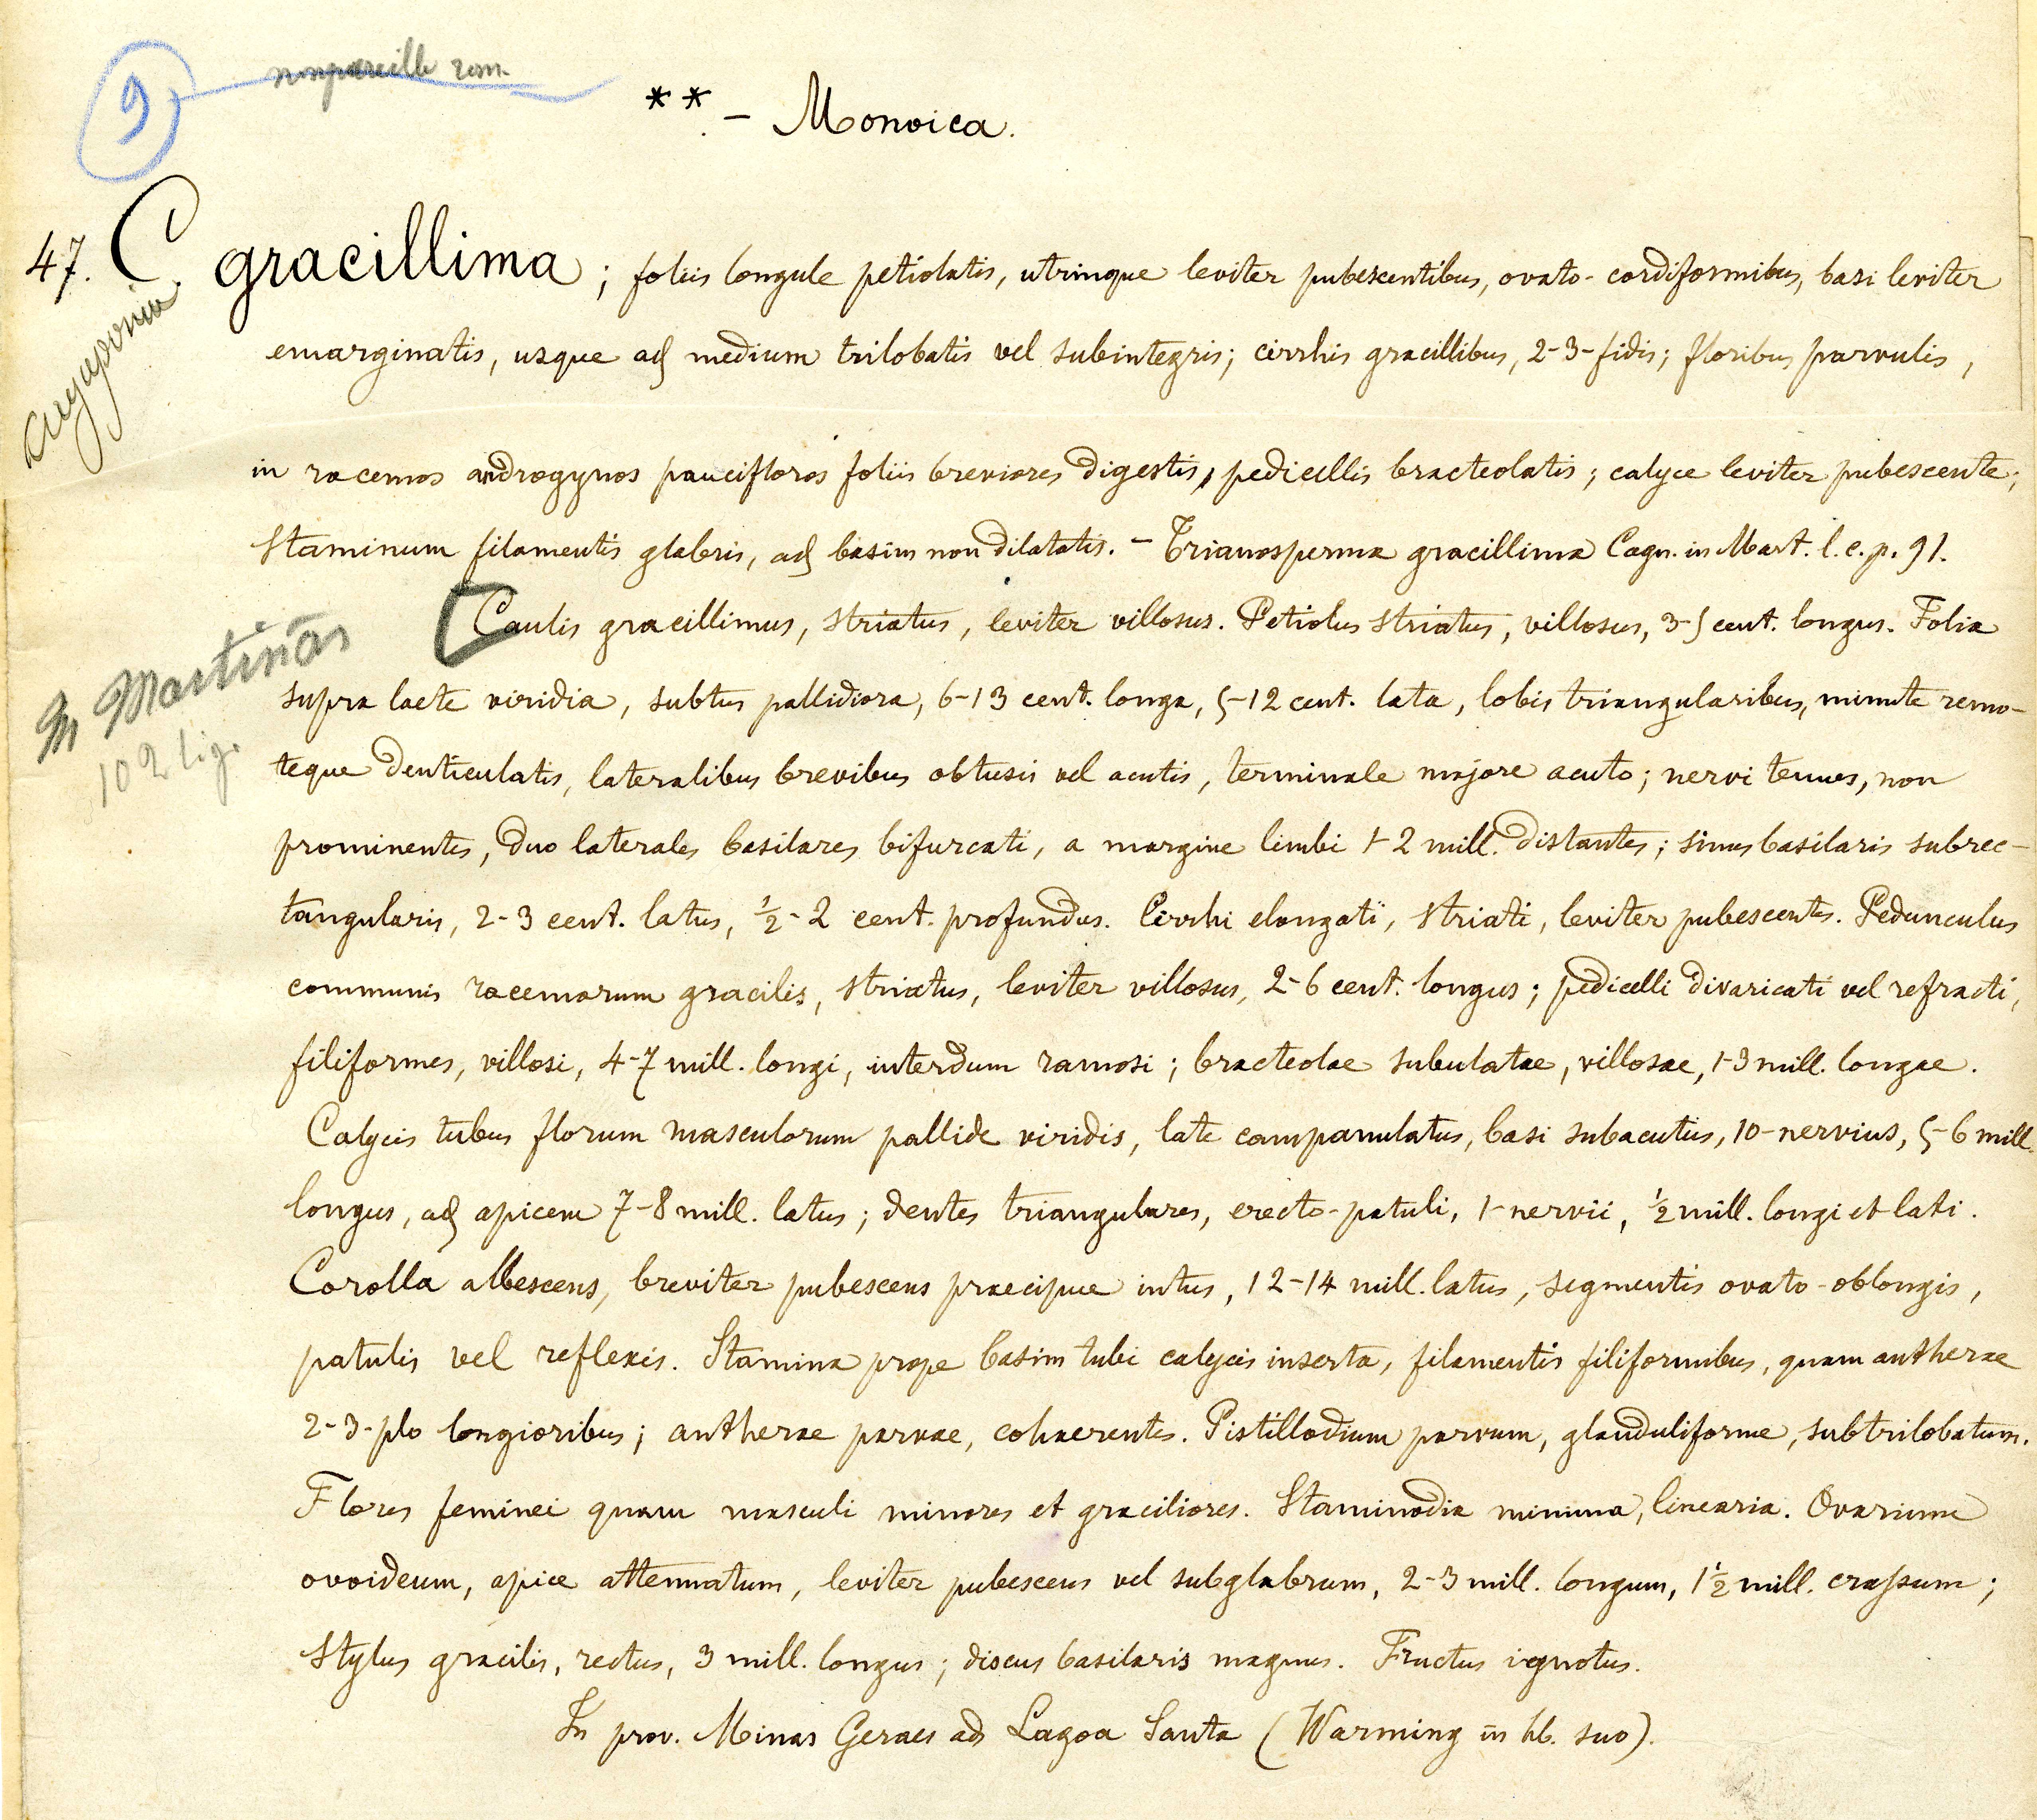 9 nonpareille rom.
**. – Monoica.
47. C. gracillima; foliis longule petiolatis, utrinque leviter pubescentibus, ovato-cordiformibus, basi leviter
Cayaponia
emarginatis, usque ad medium trilobatis vel subintegris; cirrhis gracillibus, 2-3-fidis; floribus parvulis,
in racemos androgynos paucifloros foliis breviores digestis, pedicellis bracteolatis; calyce leviter pubescente;
staminum filamentis glabris, ad basim non dilatatis. – Trianosperma gracillima Cogn. in Mart. l. c. p. 91.
Caulis gracillimus, striatus, leviter villosus. Petiolus striatus, villosus, 3-5 cent. longus. Folia
M Martinas
102 lig.
supra laete viridia, subtus pallidiora, 6-13 cent. longa, 5-12 cent. lata, lobis triangularibus, minute remo-
teque denticulatis, lateralibus brevibus obtusis vel acutis, terminale majore acuto; nervi tenues, non
prominentes, duo laterales basilares bifurcati, a margine limbi 1-2 mill. distantes; sinus basilaris subrec-
tangularis, 2-3 cent. latus, ½-2 cent. profundus. Cirrhi elongati, striati, leviter pubescentes. Pedunculus
communis racemorum gracilis, striatus, leviter villosus, 2-6 cent. longus; pedicelli divaricati vel refracti,
filiformes, villosi, 4-7 mill. longi, interdum ramosi; bracteolae subulatae, villosae, 1-3 mill. longae.
Calycis tubus florum masculorum pallide viridis, late campanulatus, basi subacutus, 10-nervius, 5-6 mill.
longus, ad apicem 7-8 mill. latus; dentes triangulares, erecto-patuli, 1-nervii, ½ mill. longi et lati.
Corolla albescens, breviter pubescens praecipue intus, 12-14 mill. latus, segmentis ovato-oblongis,
patulis vel reflexis. Stamina prope basim tubi calycis inserta, filamentis filiformibus, quam antherae
2-3-plo longioribus; antherae parvae, cohaerentes. Pistillodium parvum, glanduliforme, subtrilobatum.
Flores feminei quam masculi minores et graciliores. Staminodia minima, linearia. Ovarium
ovoideum, apice attenuatum, leviter pubescens vel subglabrum, 2-3 mill. longum, 1½ mill. crassum;
stylus gracilis, rectus, 3 mill. longus; discus basilaris magnus. Fructus ignotus.
In prov. Minas Geraes ad Lagoa Santa (Warming in hb. suo).